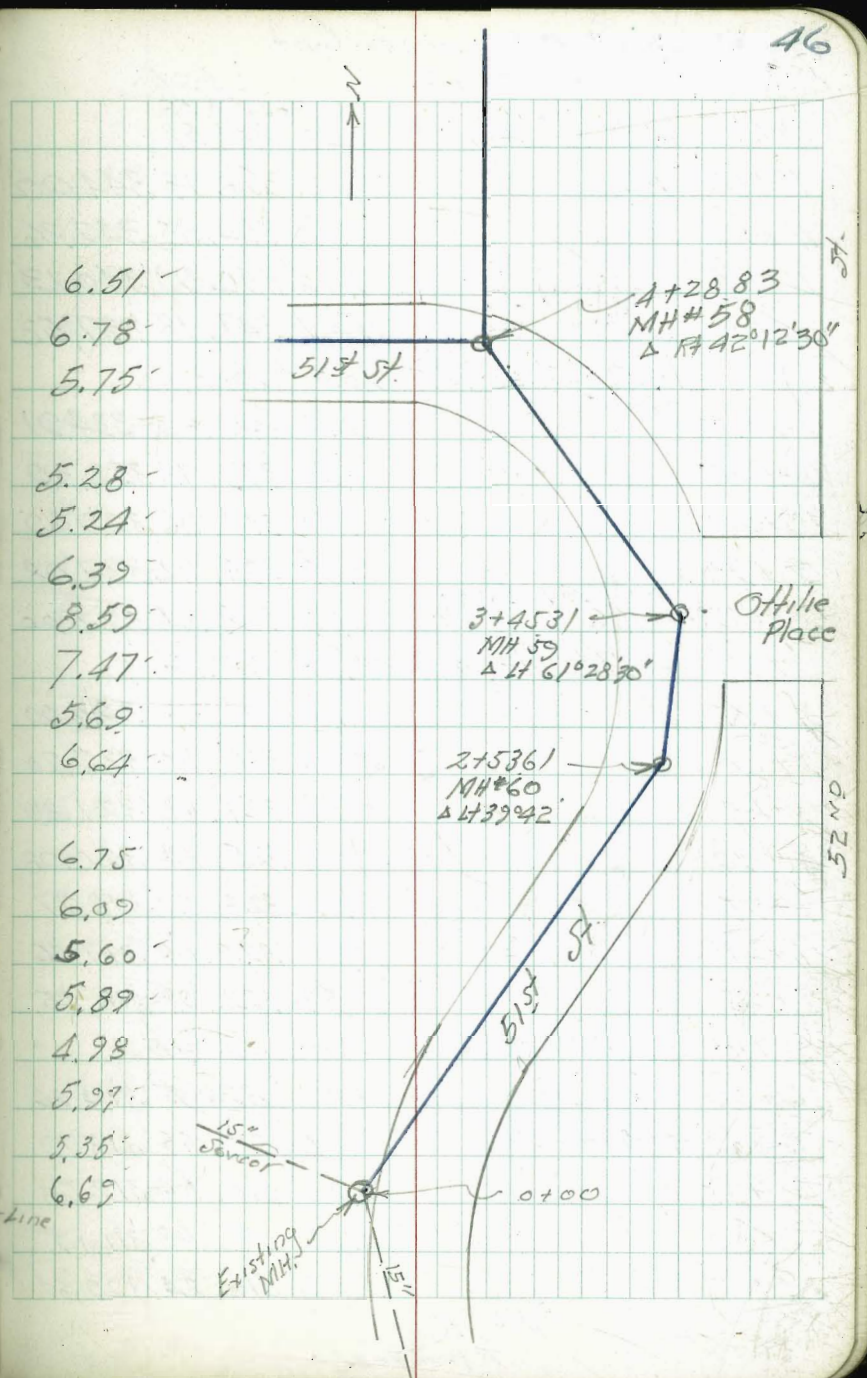 46
N
6.51
6.78
5.75
5.28
5.24
6.39
8.59
7.47
5.69
6.64
6.75
6.09
5.60
5.89
4.98
5.97
5.35
6.69
Line
4+28.83
MH# 58
Δ Rt 42°12'30"
St.
51st St.
3+4531
MH 59
Δ Lt 61°28'30"
Ottilie
Place
2+5361
MH#60
Δ Lt 39°42'
52ND
51st St
15"
Sewer
0+00
Existing
MH.
15"